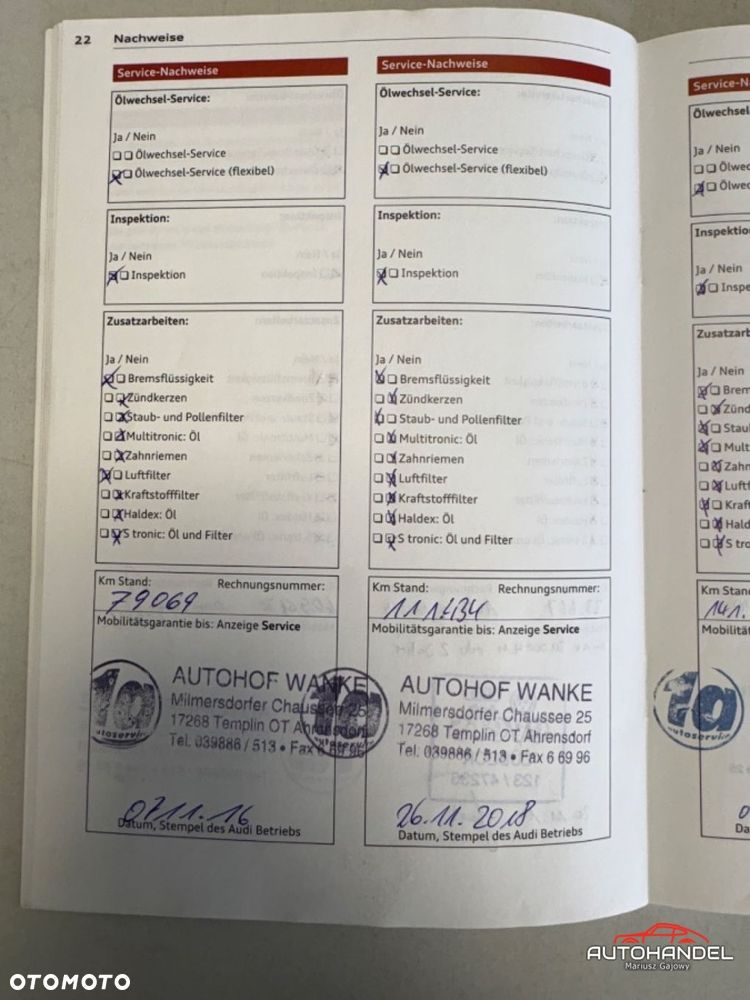 22 Nachweise
Service-Nachweise
Ölwechsel-Service:
Ja / Nein
Ölwechsel-Service
Ölwechsel-Service (flexibel)
Inspektion:
Ja / Nein
Inspektion
Zusatzarbeiten:
Ja / Nein
Bremsflüssigkeit
Zündkerzen
Staub- und Pollenfilter
Multitronic: Öl
Zahnriemen
Luftfilter
Kraftstofffilter
Haldex: Öl
S tronic: Öl und Filter
Km Stand: Rechnungsnummer:
79069
Mobilitätsgarantie bis: Anzeige Service
1a
autoservice
AUTOHOF WANKE
Milmersdorfer Chaussee 25
17268 Templin OT Ahrensdorf
Tel. 039886 / 513 • Fax 6 69 96
07.11.16
Datum, Stempel des Audi Betriebs
Service-Nachweise
Ölwechsel-Service:
Ja / Nein
Ölwechsel-Service
Ölwechsel-Service (flexibel)
Inspektion:
Ja / Nein
Inspektion
Zusatzarbeiten:
Ja / Nein
Bremsflüssigkeit
Zündkerzen
Staub- und Pollenfilter
Multitronic: Öl
Zahnriemen
Luftfilter
Kraftstofffilter
Haldex: Öl
S tronic: Öl und Filter
Km Stand: Rechnungsnummer:
Mobilitätsgarantie bis: Anzeige Service
1a
autoservice
AUTOHOF WANKE
Milmersdorfer Chaussee 25
17268 Templin OT Ahrensdorf
Tel. 039886 / 513 • Fax 6 69 96
26.11.2018
Datum, Stempel des Audi Betriebs
Service-N
Ölwechsel
Ja / Nein
Ölwe
Ölwe
Inspektio
Ja / Nein
Inspe
Zusatzart
Ja / Nein
Brem
Zünd
Stau
Mult
Zahn
Luftf
Kraf
Hald
S tro
Km Stand
141.
Mobilitä
1a
autoservice
Da
AUTOHANDEL
Mariusz Gajowy
OTOMOTO